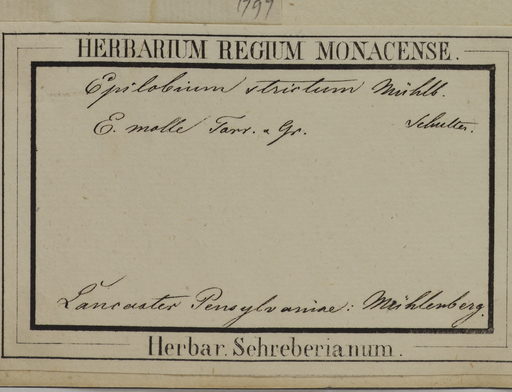 1797
HERBARIUM REGIUM MONACENSE.
Epilobium strictum Mühlb.
E. molle Torr. & Gr. Schultes.
Lancaster Pensylvaniae: Mühlenberg.
Herbar. Schreberianum.